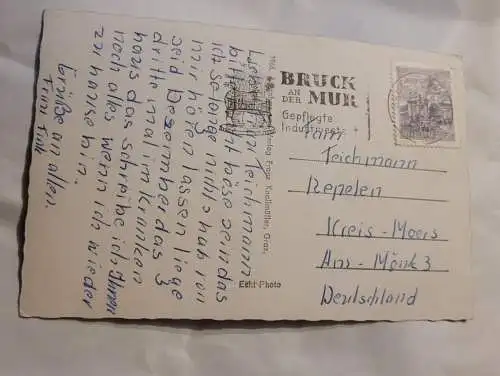 Liebe Frau Teichmann
bitte nicht böse sein das
ich so lange nichts hab von
mir hören lassen liege
seid Dezember das 3
dritte mal im Kranken
haus das schreibe ich Ihnen
noch alles wenn ich wieder
zu hause bin.
Grüße an allen.
Frau
BRUCK
AN
DER MUR
Gepflegte
Industriestadt
Verlag Franz Knollmüller, Graz
Echt-Photo
Fam
Teichmann
Repelen
Kreis-Moers
Am-Mönk 3
Deutschland